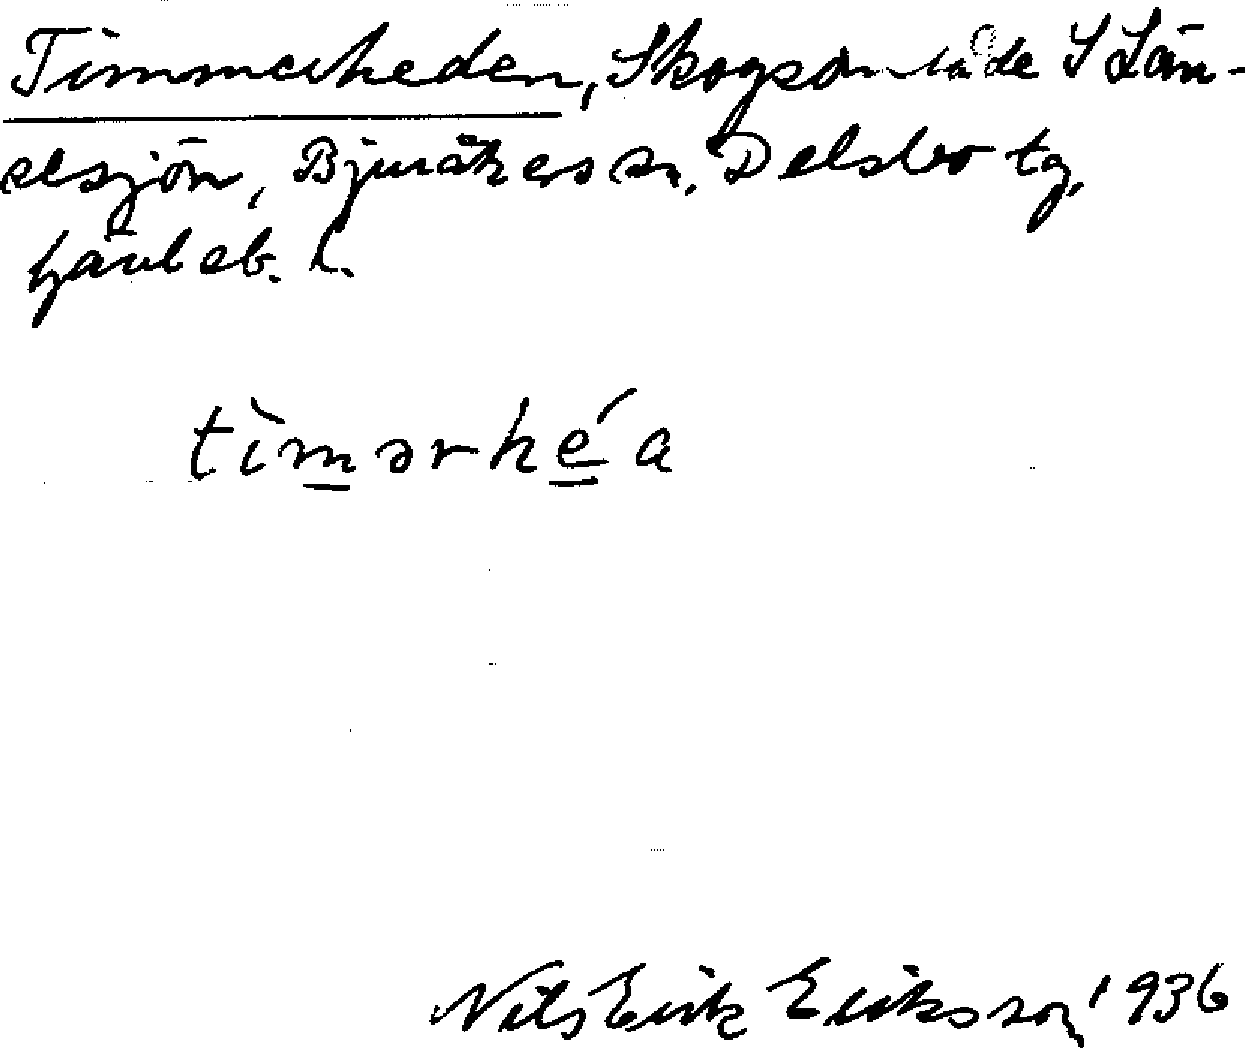 Timmerheden, Skogsområde S Län-
elsjön, Bjuråkers sn, Delsbo tg,
Gävleb. l.
tìmərhéa
Nils Erik Eriksson 1936